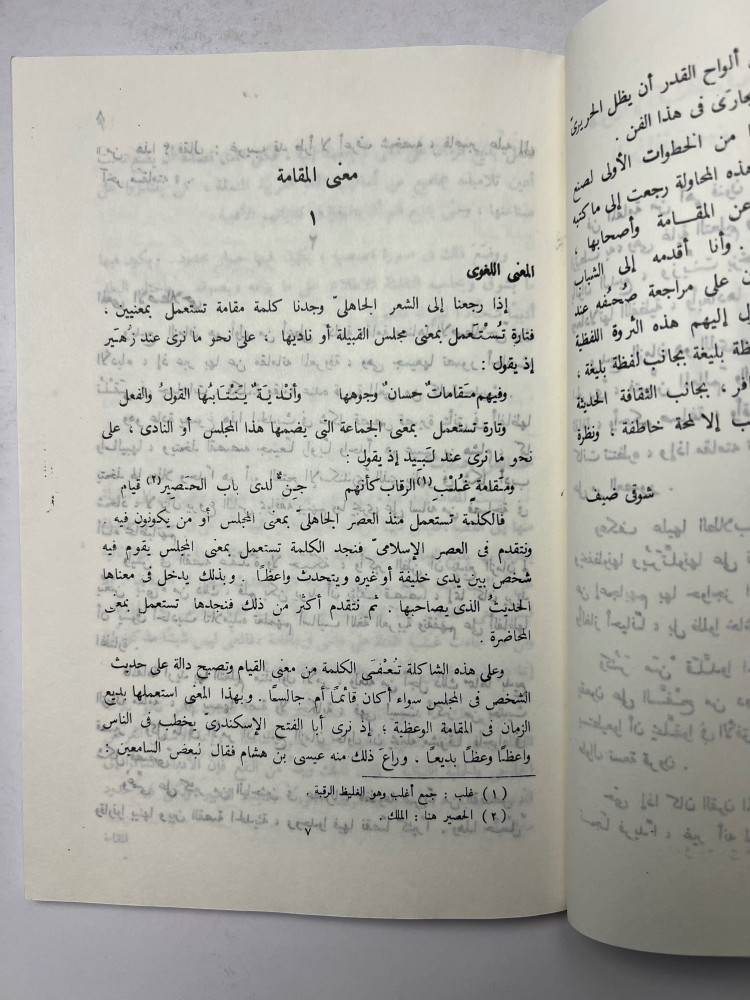 ألواح القدر أن يظل الحريرى
فى هذا الفن .
من الخطوات الأولى لصنع
هذه المحاولة رجعت إلى ما كتبه
عن المقامة وأصحابها ،
. وأنا أقدمه إلى الشباب
على مراجعة صُحُفه عند
إليهم هذه الثروة اللفظية
بليغة بجانب لفظة بليغة ،
، بجانب الثقافة الحديثة
إلا لمحة خاطفة ، ونظرة
شوقى ضيف
معنى المقامة
١
المعنى اللغوى
إذا رجعنا إلى الشعر الجاهلىّ وجدنا كلمة مقامة تستعمل بمعنيين ،
فتارة تُسْتَعمل بمعنى مجلس القبيلة أو ناديها ، على نحو ما نرى عند زُهَير
إذ يقول :
وفيهم مَقاماتٌ حسانٌ وجوهها وأنْديَةٌ يَنْتَابُها القولُ والفعل
وتارة تستعمل بمعنى الجماعة التى يضمها هذا المجلس أو النادى ، على
نحو ما نرى عند لَبيد إذ يقول :
ومَقامة غُلْبِ(١) الرقاب كأنهم جِنٌّ لدى باب الحَصِير(٢) قيام
فالكلمة تستعمل منذ العصر الجاهلىّ بمعنى المجلس أو من يكونون فيه .
ونتقدم فى العصر الإسلامىّ فنجد الكلمة تستعمل بمعنى المجلس يقوم فيه
شخص بين يدى خليفة أو غيره ويتحدث واعظًا . وبذلك يدخل فى معناها
الحديثُ الذى يصاحبها . ثم نتقدم أكثر من ذلك فنجدها تستعمل بمعى
المحاضرة .
وعلى هذه الشاكلة تُعْفَى الكلمة من معنى القيام وتصبح دالة على حديث
الشخص فى المجلس سواء أكان قائمًا أم جالسًا . وبهذا المعنى استعملها بديع
الزمان فى المقامة الوعظية ؛ إذ نرى أبا الفتح الإسكندرىّ يخطب فى الناس
واعظًا وعظًا بديعًا . وراعَ ذلك منه عيسى بن هشام فقال لبعض السامعين :
(١) غلب : جمع أغلب وهو الغليظ الرقبة .
(٢) الحصير هنا : الملك .
٧